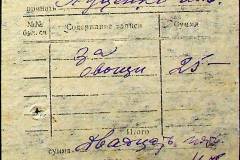 принять
№№ Содержание записи Сумма
за
овощи 25-
Итого
сумма Двадцать пять